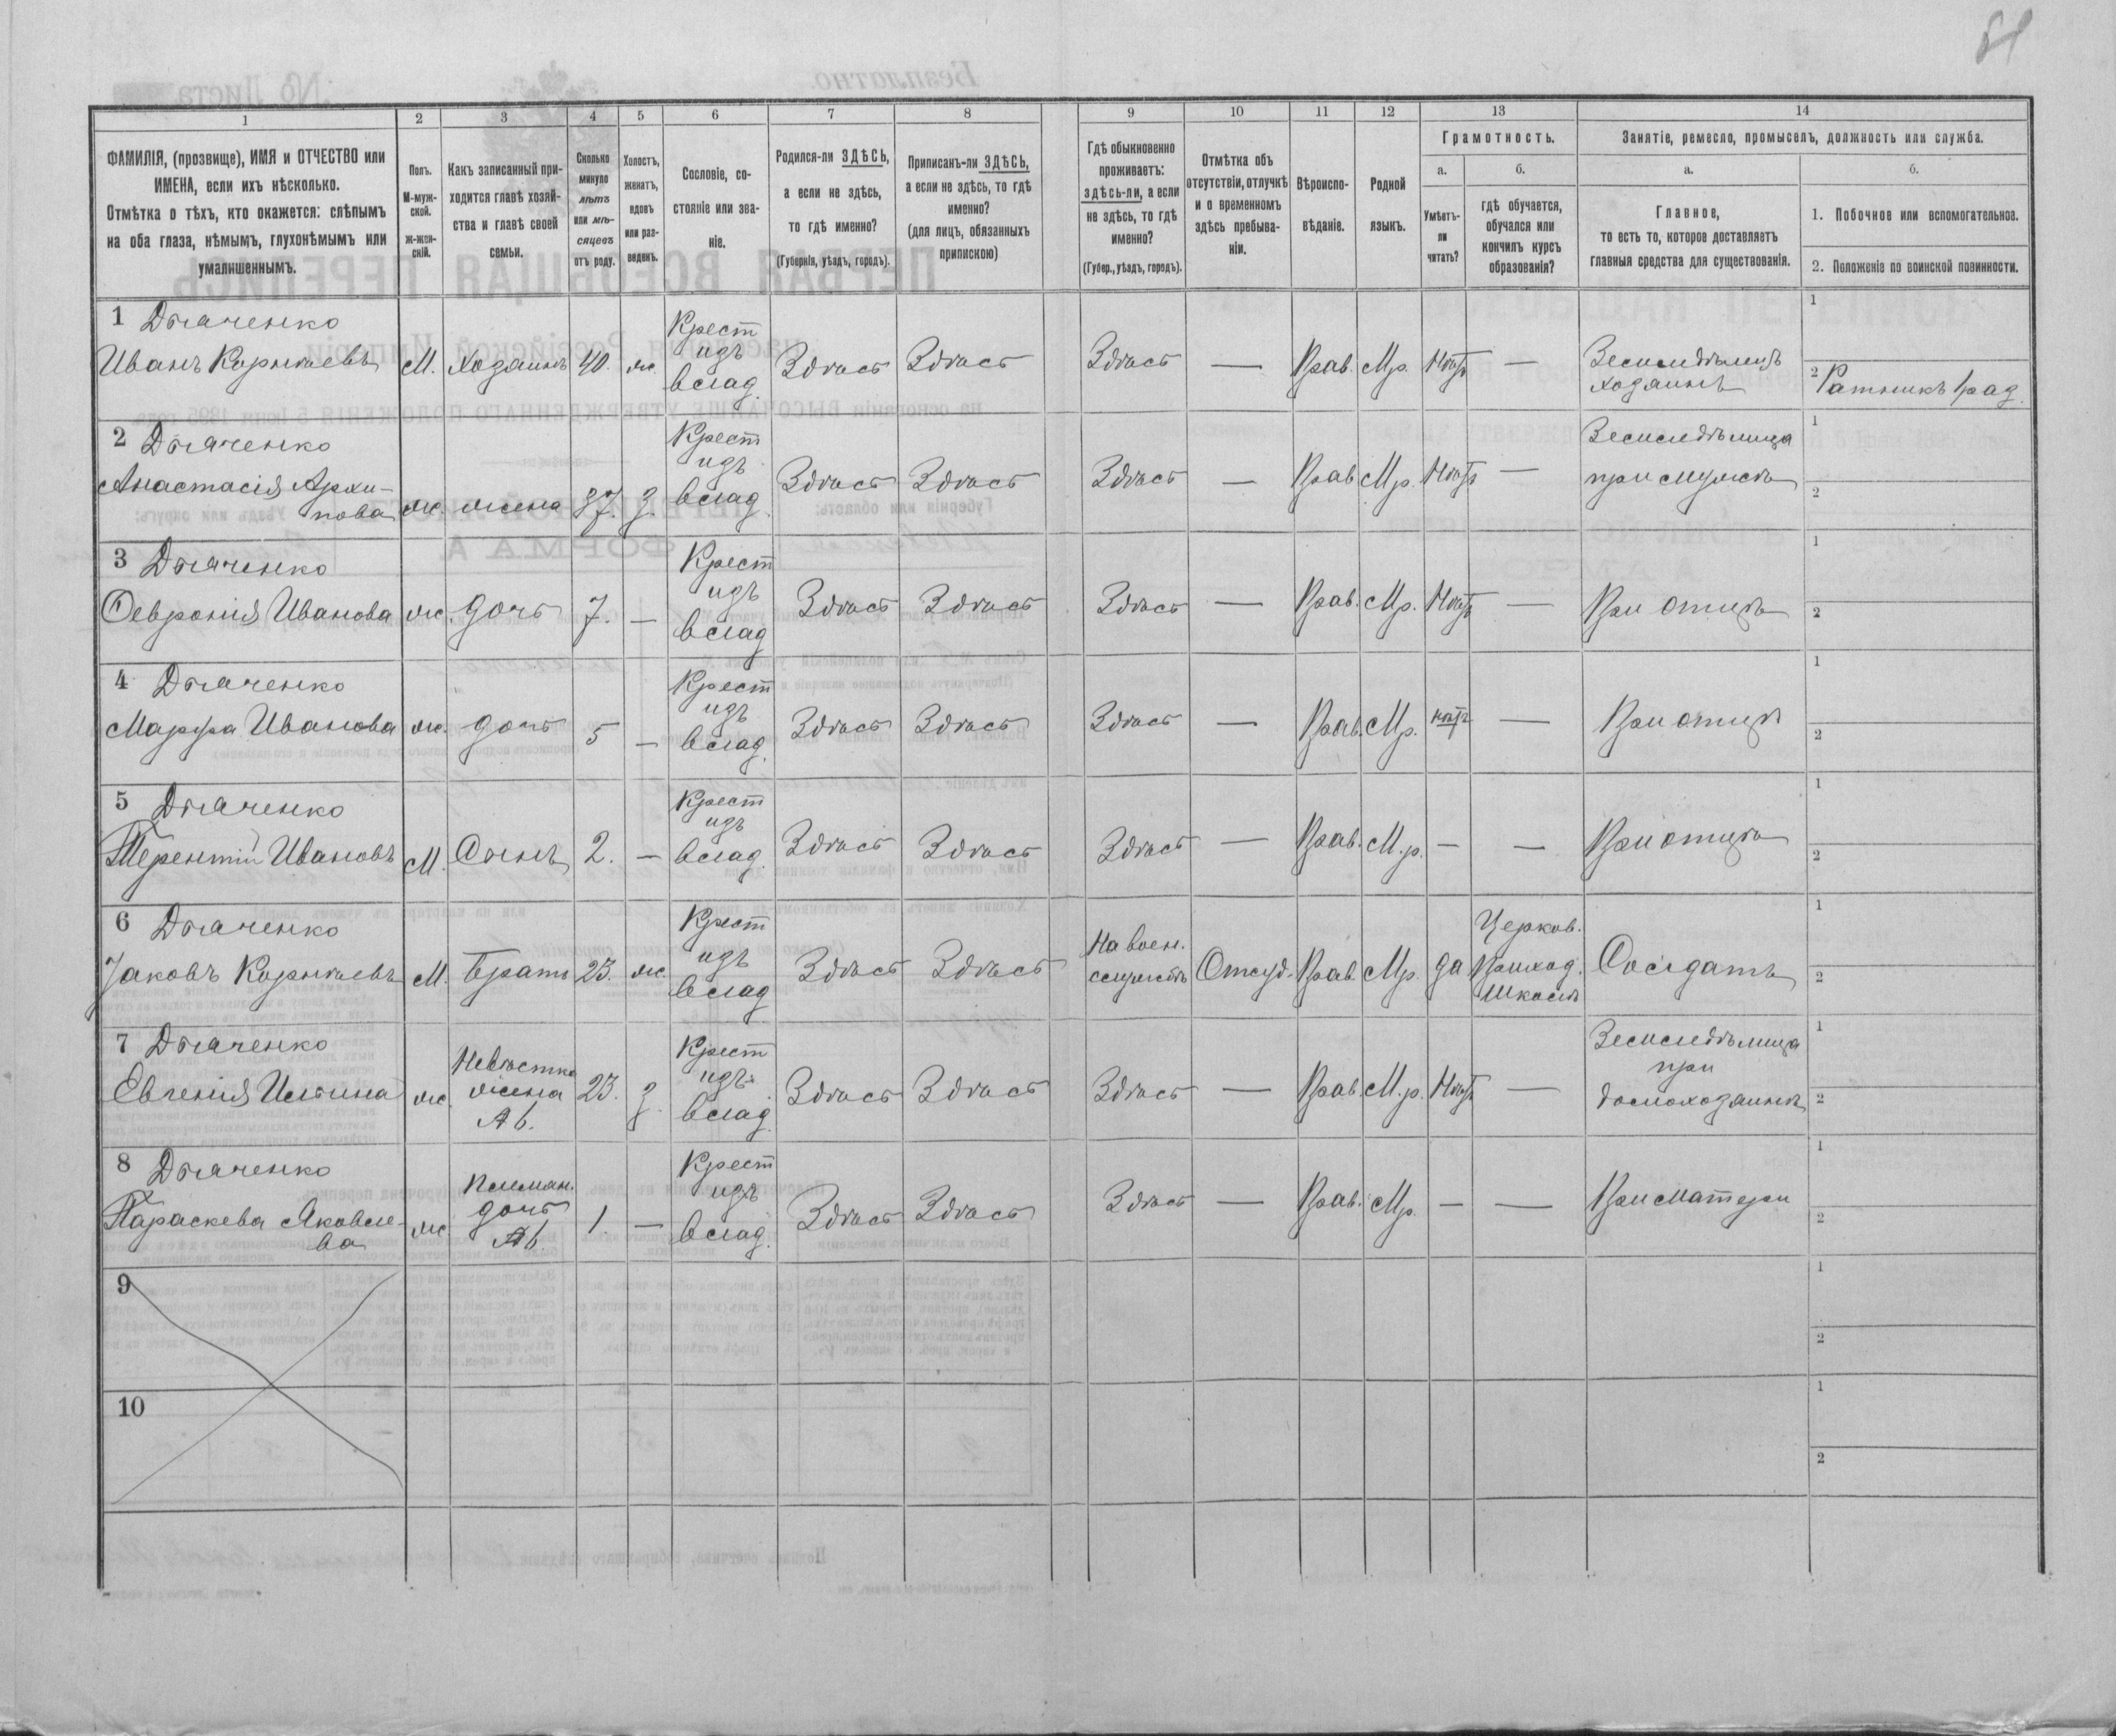 51
1 2 3 4 5 6 7 8 9 10 11 12 13 14
ФАМИЛІЯ, (прозвище), ИМЯ и ОТЧЕСТВО или
ИМЕНА, если ихъ нѣсколько.
Отмѣтка о тѣхъ, кто окажется: слѣпымъ
на оба глаза, нѣмымъ, глухонѣмымъ или
умалишеннымъ.
Полъ.
М-муж-
ской.
Ж-жен-
скій.
Какъ записанный при-
ходится главѣ хозяй-
ства и главѣ своей
семьи.
Сколько
минуло
лѣтъ
или мѣ-
сяцевъ
отъ роду.
Холостъ,
женатъ,
вдовъ
или раз-
веденъ.
Сословіе, со-
стояніе или зва-
ніе.
Родился-ли ЗДѢСЬ,
а если не здѣсь,
то гдѣ именно?
(Губернія, уѣздъ, городъ).
Приписанъ-ли ЗДѢСЬ,
а если не здѣсь, то гдѣ
именно?
(для лицъ, обязанныхъ
припискою)
Гдѣ обыкновенно
проживаетъ:
здѣсь-ли, а если
не здѣсь, то гдѣ
именно?
(Губер., уѣздъ, городъ).
Отмѣтка объ
отсутствіи, отлучкѣ
и о временномъ
здѣсь пребыва-
ніи.
Вѣроиспо-
вѣданіе.
Родной
языкъ.
Грамотность.
а.
Умѣетъ-
ли
читать?
б.
гдѣ обучается,
обучался или
кончилъ курсъ
образованія?
Занятіе, ремесло, промыселъ, должность или служба.
а.
Главное,
то есть то, которое доставляетъ
главныя средства для существованія.
б.
1. Побочное или вспомогательное.
2. Положеніе по воинской повинности.
1 Дьяченко
Иванъ Корнѣевъ М. Хозяинъ 40. ж. Крест изъ влад. Здѣсь Здѣсь Здѣсь — Прав. Мр. Нѣтъ — Земледѣлецъ хозяинъ 1 2 Ратникъ 1 раз.
2 Дьяченко
Анастасія Архи-
пова ж. жена 37. з. Крест изъ влад. Здѣсь Здѣсь Здѣсь — Прав Мр. Нѣтъ — Земледѣлица при мужѣ 1 2
3 Дьяченко
Февронія Иванова ж. дочь 7. — Крест изъ влад Здѣсь Здѣсь Здѣсь — Прав. Мр. Нѣтъ — При отцѣ 1 2
4 Дьяченко
Марфа Иванова ж. дочь 5 — Крест изъ влад. Здѣсь Здѣсь Здѣсь — Прав. Мр. нѣтъ — При отцѣ 1 2
5 Дьяченко
Терентій Ивановъ М. Сынъ 2. — Крест изъ влад. Здѣсь Здѣсь Здѣсь — Прав. М.р. — — При отцѣ 1 2
6 Дьяченко
Яковъ Корнѣевъ М. Братъ 23. ж. Крест изъ влад Здѣсь Здѣсь На воен. службѣ Отсуд. Прав. Мр. да Церков. Приход. Школѣ Солдатъ 1 2
7 Дьяченко
Евгенія Ильина ж. Невѣстка жена Аб. 23. з. Крест изъ влад. Здѣсь Здѣсь Здѣсь — Прав. М.р. Нѣтъ — Земледѣлица при домохозяинѣ 1 2
8 Дьяченко
Параскева Яковле-
ва ж. Племян. дочь Аб 1. — Крест изъ влад. Здѣсь Здѣсь Здѣсь — Прав. Мр. — — При матери 1 2
9 1 2
10 1 2